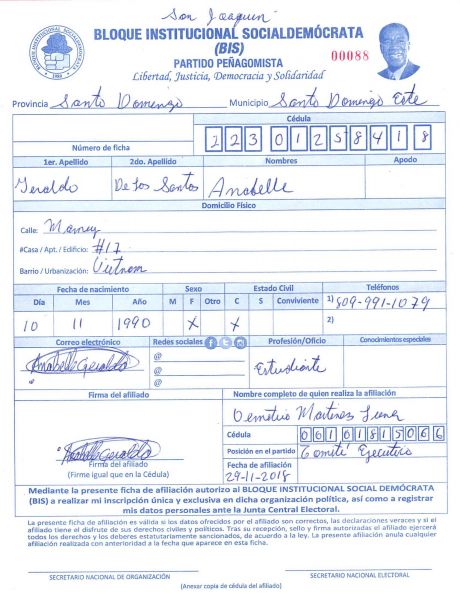 San Joaquin
BLOQUE INSTITUCIONAL SOCIALDEMÓCRATA
(BIS)
PARTIDO PEÑAGOMISTA
Libertad, Justicia, Democracia y Solidaridad
BLOQUE INSTITUCIONAL SOCIALDEMOCRATA
00088
Provincia Santo Domingo Municipio Santo Domingo Este
Cédula
Número de ficha 22301258418
1er. Apellido 2do. Apellido Nombres Apodo
Geraldo De Los Santos Anabelle
Domicilio Físico
Calle: Mamey
#Casa / Apt. / Edificio: #17
Barrio / Urbanización: Vietnam
Fecha de nacimiento Sexo Estado Civil Teléfonos
Día Mes Año M F Otro C S Conviviente 1) 809-991-1079
10 11 1990 X X 2)
Correo electrónico Redes sociales Profesión/Oficio Conocimientos especiales
Anabelle Geraldo @ Estudiante
@
@
Firma del afiliado Nombre completo de quien realiza la afiliación
Demetrio Martinez
Cédula 00101815066
Anabelle Geraldo Posición en el partido Comité Ejecutivo
Firma del afiliado Fecha de afiliación
(Firme igual que en la Cédula) 29-11-2018
Mediante la presente ficha de afiliación autorizo al BLOQUE INSTITUCIONAL SOCIAL DEMÓCRATA
(BIS) a realizar mi inscripción única y exclusiva en dicha organización política, así como a registrar
mis datos personales ante la Junta Central Electoral.
La presente ficha de afiliación es válida si los datos ofrecidos por el afiliado son correctos, las declaraciones veraces y si el
afiliado tiene el disfrute de sus derechos civiles y políticos. Tras su recepción, sello y firma autorizadas el afiliado ejercerá
todos los derechos y los deberes estatutariamente sancionados, de acuerdo a la ley. La presente afiliación anula cualquier
afiliación realizada con anterioridad a la fecha que aparece en esta ficha.
SECRETARIO NACIONAL DE ORGANIZACIÓN SECRETARIO NACIONAL ELECTORAL
(Anexar copia de cédula del afiliado)